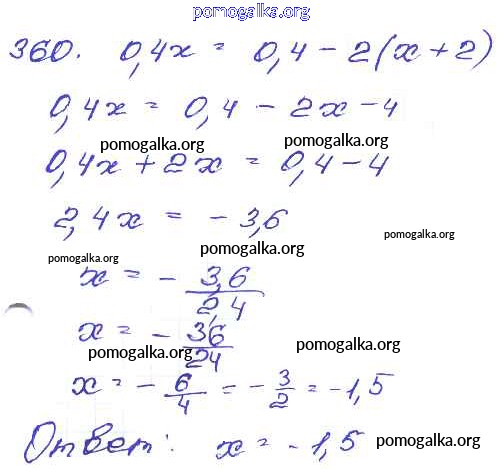 pomogalka.org
360. 0,4x = 0,4 - 2(x + 2)
0,4x = 0,4 - 2x - 4
pomogalka.org pomogalka.org
0,4x + 2x = 0,4 - 4
2,4x = - 3,6
pomogalka.org
pomogalka.org pomogalka.org
x = - 3,6/2,4
x = - 36/24
pomogalka.org pomogalka.org
x = - 6/4 = - 3/2 = -1,5
Ответ: x = -1,5
pomogalka.org